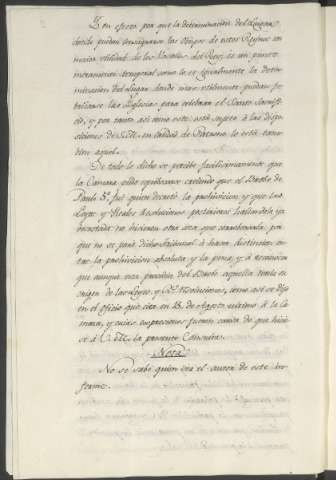 Y en efecto por que la determinacion del Lugar,
donde puedan consagrarse los Obispos de estos Reynos con
maior utilidad de los Vasallos del Rey, es un punto
meramente temporal como lo es igualmente la deter-
minacion del Lugar donde mas utilmente puedan fa-
bricarse las Yglesias para celebrar el Santo Sacrifi-
cio, y por tanto, asi como este está sujeto a las dispo-
siciones de S.M. en calidad de Patrono lo está tam-
bien aquel.
De todo lo dicho se percibe facilisimamente que
la Camara pidió equibocada creiendo que el Breve de
Paulo 5º fué quien decretó la prohivicion, y que las
Leyes y Reales Resoluciones posteriores hallandola ya
decretada no hicieron otra cosa que corroborarla por-
que no se paró dicho Tribunal à hacer distincion en-
tre la prohivicion absoluta y la pena, y à advertir
que aunque esta procedia del Breve aquella tenia su
origen de las Leyes, y Rs. Resoluciones, como asi se dijo
en el oficio que cita en 18. de Agosto ultimo à la Ca-
mara, y cuias expresiones fueron causa de que hicie-
se à V.M. la presente Consulta.
Nota
No se sabe quien era el autor de este in-
forme.